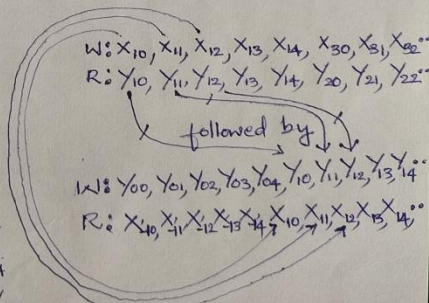 W: X10, X11, X12, X13, X14, X30, X31, X32..
R: Y10, Y11, Y12, Y13, Y14, Y20, Y21, Y22..
followed by
W: Y00, Y01, Y02, Y03, Y04, Y10, Y11, Y12, Y13, Y14..
R: X-10, X-11, X-12, X-13, X-14, X10, X11, X12, X13, X14, ..